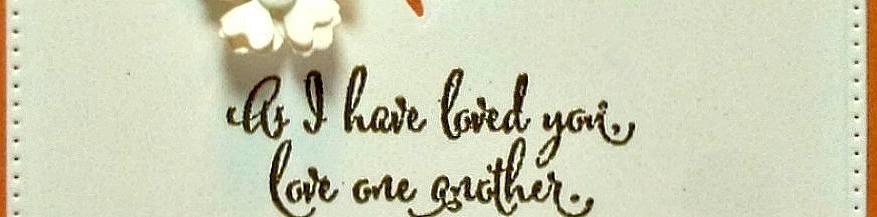 As I have loved you,
love one another.